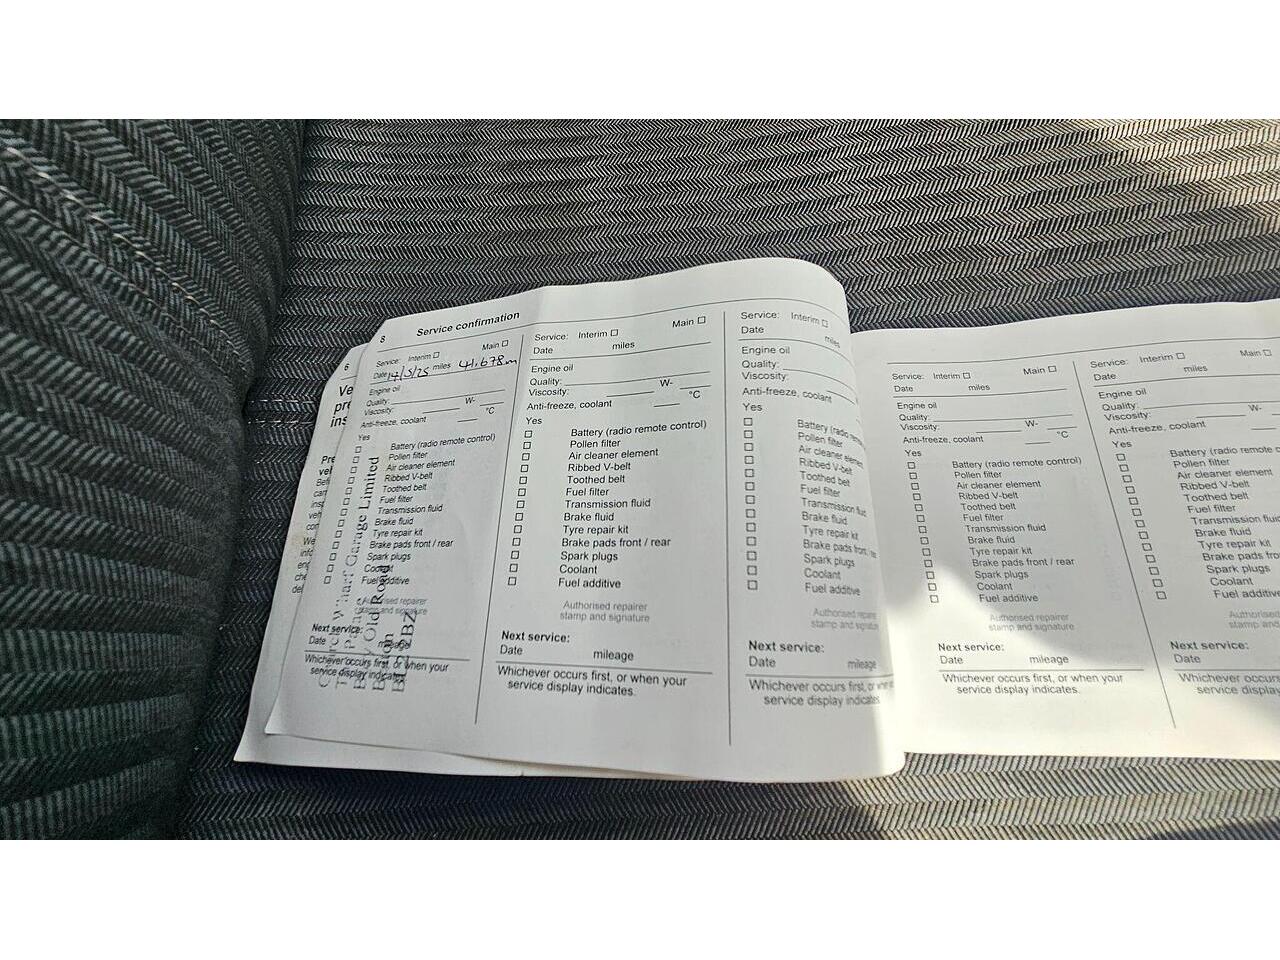 6
Ve
pre
ins
Pre
veh
8
Service confirmation
Service: Interim Main
Date 14/5/25 miles 41,678m
Engine oil
Quality: W-
Viscosity:
Anti-freeze, coolant °C
Yes
Battery (radio remote control)
Pollen filter
Air cleaner element
Ribbed V-belt
Toothed belt
Fuel filter
Transmission fluid
Brake fluid
Tyre repair kit
Brake pads front / rear
Spark plugs
Coolant
Fuel additive
Authorised repairer
stamp and signature
Garage Limited
Old Road
Next service:
Date mileage
Whichever occurs first, or when your
service display indicates.
Service: Interim Main
Date miles
Engine oil
Quality: W-
Viscosity:
Anti-freeze, coolant °C
Yes
Battery (radio remote control)
Pollen filter
Air cleaner element
Ribbed V-belt
Toothed belt
Fuel filter
Transmission fluid
Brake fluid
Tyre repair kit
Brake pads front / rear
Spark plugs
Coolant
Fuel additive
Authorised repairer
stamp and signature
Next service:
Date mileage
Whichever occurs first, or when your
service display indicates.
Service: Interim
Date miles
Engine oil
Quality:
Viscosity:
Anti-freeze, coolant
Yes
Battery (radio remo
Pollen filter
Air cleaner element
Ribbed V-belt
Toothed belt
Fuel filter
Transmission fluid
Brake fluid
Tyre repair kit
Brake pads front / re
Spark plugs
Coolant
Fuel additive
Authorised repairer
stamp and signature
Next service:
Date mileage
Whichever occurs first, or when
service display indicates
Service: Interim Main
Date miles
Engine oil
Quality:
Viscosity: W-
Anti-freeze, coolant °C
Yes
Battery (radio remote control)
Pollen filter
Air cleaner element
Ribbed V-belt
Toothed belt
Fuel filter
Transmission fluid
Brake fluid
Tyre repair kit
Brake pads front / rear
Spark plugs
Coolant
Fuel additive
Authorised repairer
stamp and signature
Next service:
Date mileage
Whichever occurs first, or when your
service display indicates.
Service: Interim Main
Date miles
Engine oil
Quality: W-
Viscosity:
Anti-freeze, coolant °C
Yes
Battery (radio remote c
Pollen filter
Air cleaner element
Ribbed V-belt
Toothed belt
Fuel filter
Transmission fluid
Brake fluid
Tyre repair kit
Brake pads front / re
Spark plugs
Coolant
Fuel additive
Authorised
stamp and
Next service:
Date
Whichever occurs first, or
service display indicates